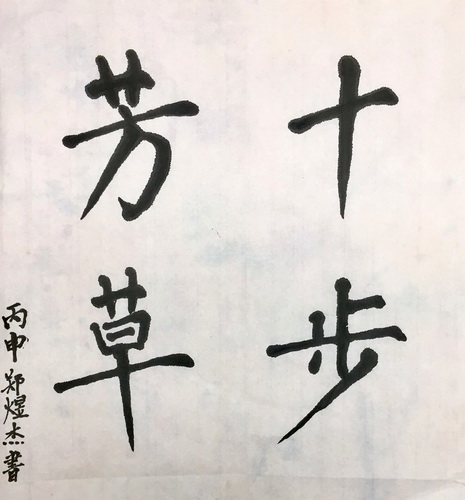 十步
芳草
丙申郑煜杰書